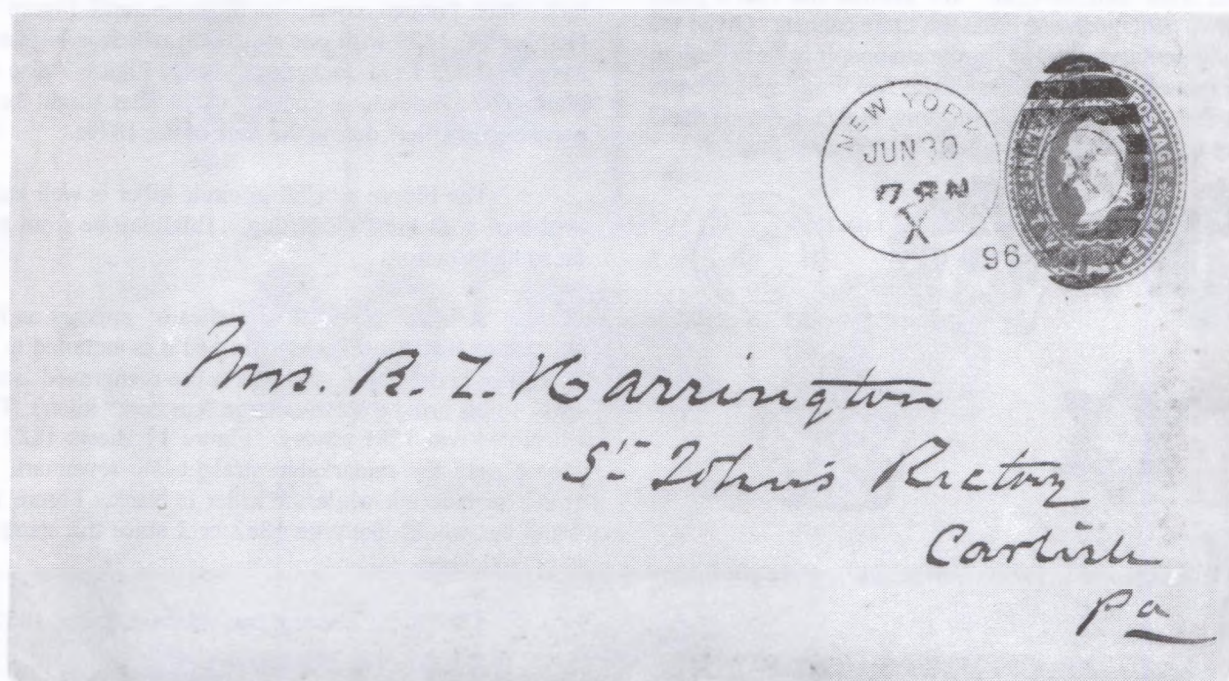 NEW YORK
JUN 30
7 PM
X
96
UNITED STATES POSTAGE
CENTS
Mrs. R. Z. Harrington
St John's Rectory
Carlisle
Pa